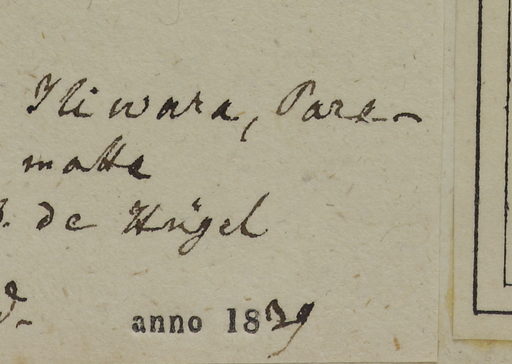 Iliwara, Para-
matta
B. de Hügel
d.
anno 1839